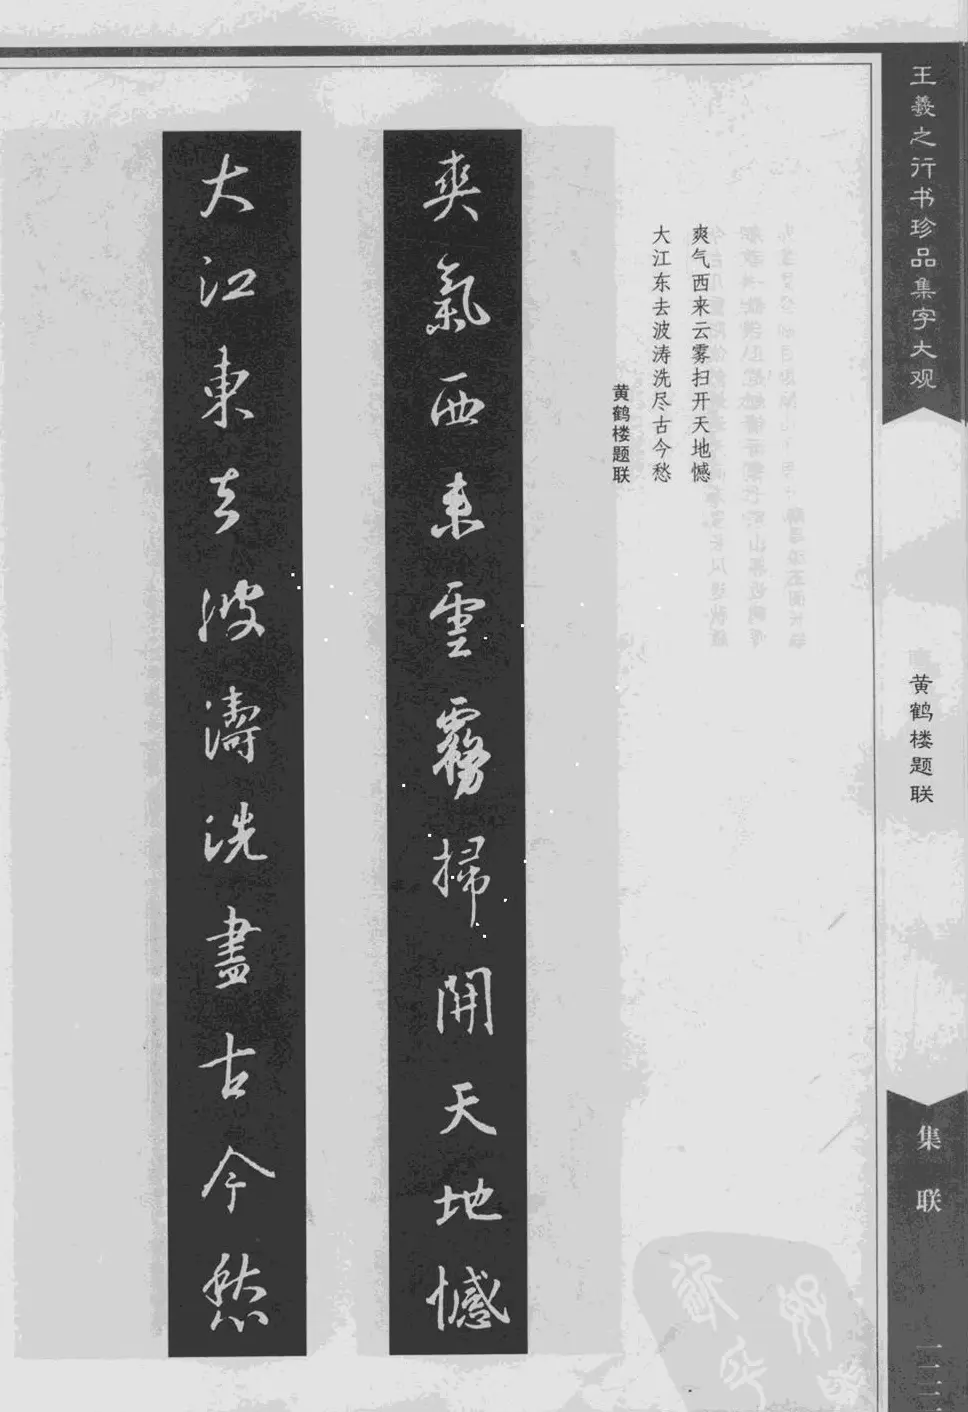 王羲之行书珍品集字大观
黄鹤楼题联
集联
爽气西来云雾扫开天地憾
大江东去波涛洗尽古今愁
黄鹤楼题联
爽氣西来雲霧掃開天地憾
大江東去波濤洗盡古今愁